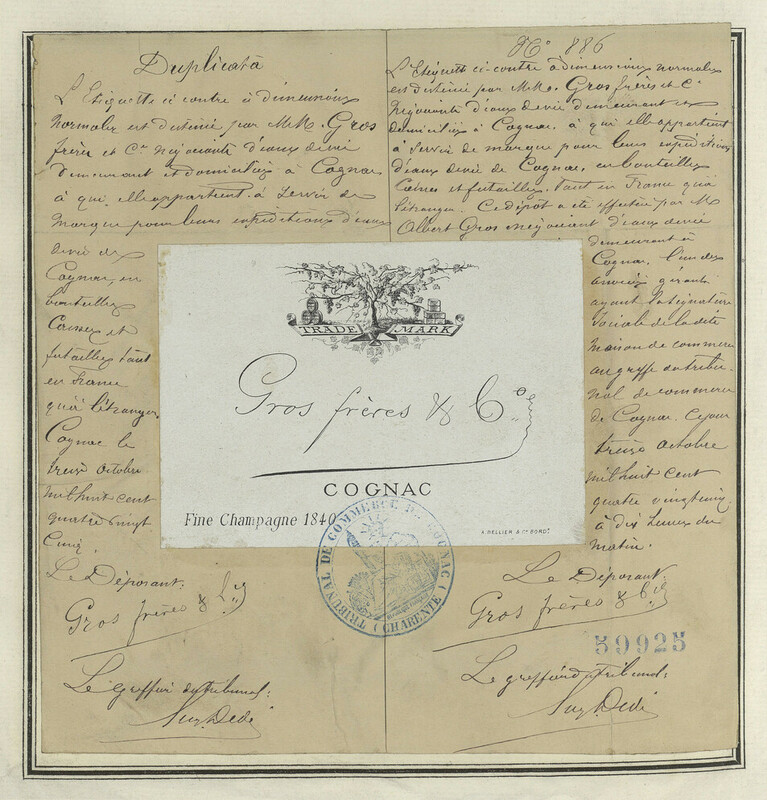 Duplicata
L'Etiquette ci contre à dimensions
normales est destinée par M.M. Gros
frères et Cie négociants d'eaux de vie
demeurant et domiciliés à Cognac
à qui elle appartient à servir de
marque pour leurs expéditions d'eaux
de vie de
Cognac, en
bouteilles
Caisses et
futailles tant
en France
qu'à l'étranger.
Cognac le
treize Octobre
mil huit cent
quatre vingt
Cinq.
Le Déposant:
Gros frères & Cie
Le greffier du tribunal:
No 886
L'Etiquette ci-contre à dimensions normales
est destinée par M.M. Gros frères et Cie
Négociants d'eaux de vie demeurant et
domiciliés à Cognac, à qui elle appartient
à servir de marque pour leurs expéditions
d'eaux de vie de Cognac, en bouteilles
Caisses et futailles, tant en France qu'à
l'étranger. Ce dépôt a été effectué par M
Albert Gros négociant d'eaux de vie
demeurant à
Cognac, l'un des
gérants
ayant la signature
sociale de la dite
maison de commerce
au greffe du tribu-
nal de commerce
de Cognac. Ce jour
treize Octobre
mil huit cent
quatre vingt cinq
à dix heures du
matin.
Le Déposant:
Gros frères & Cie
59925
Le greffier du tribunal:
TRADE MARK
Gros frères & Cie
COGNAC
Fine Champagne 1840
A. BELLIER & Cie BORDx
TRIBUNAL DE COMMERCE DE COGNAC
(CHARENTE)